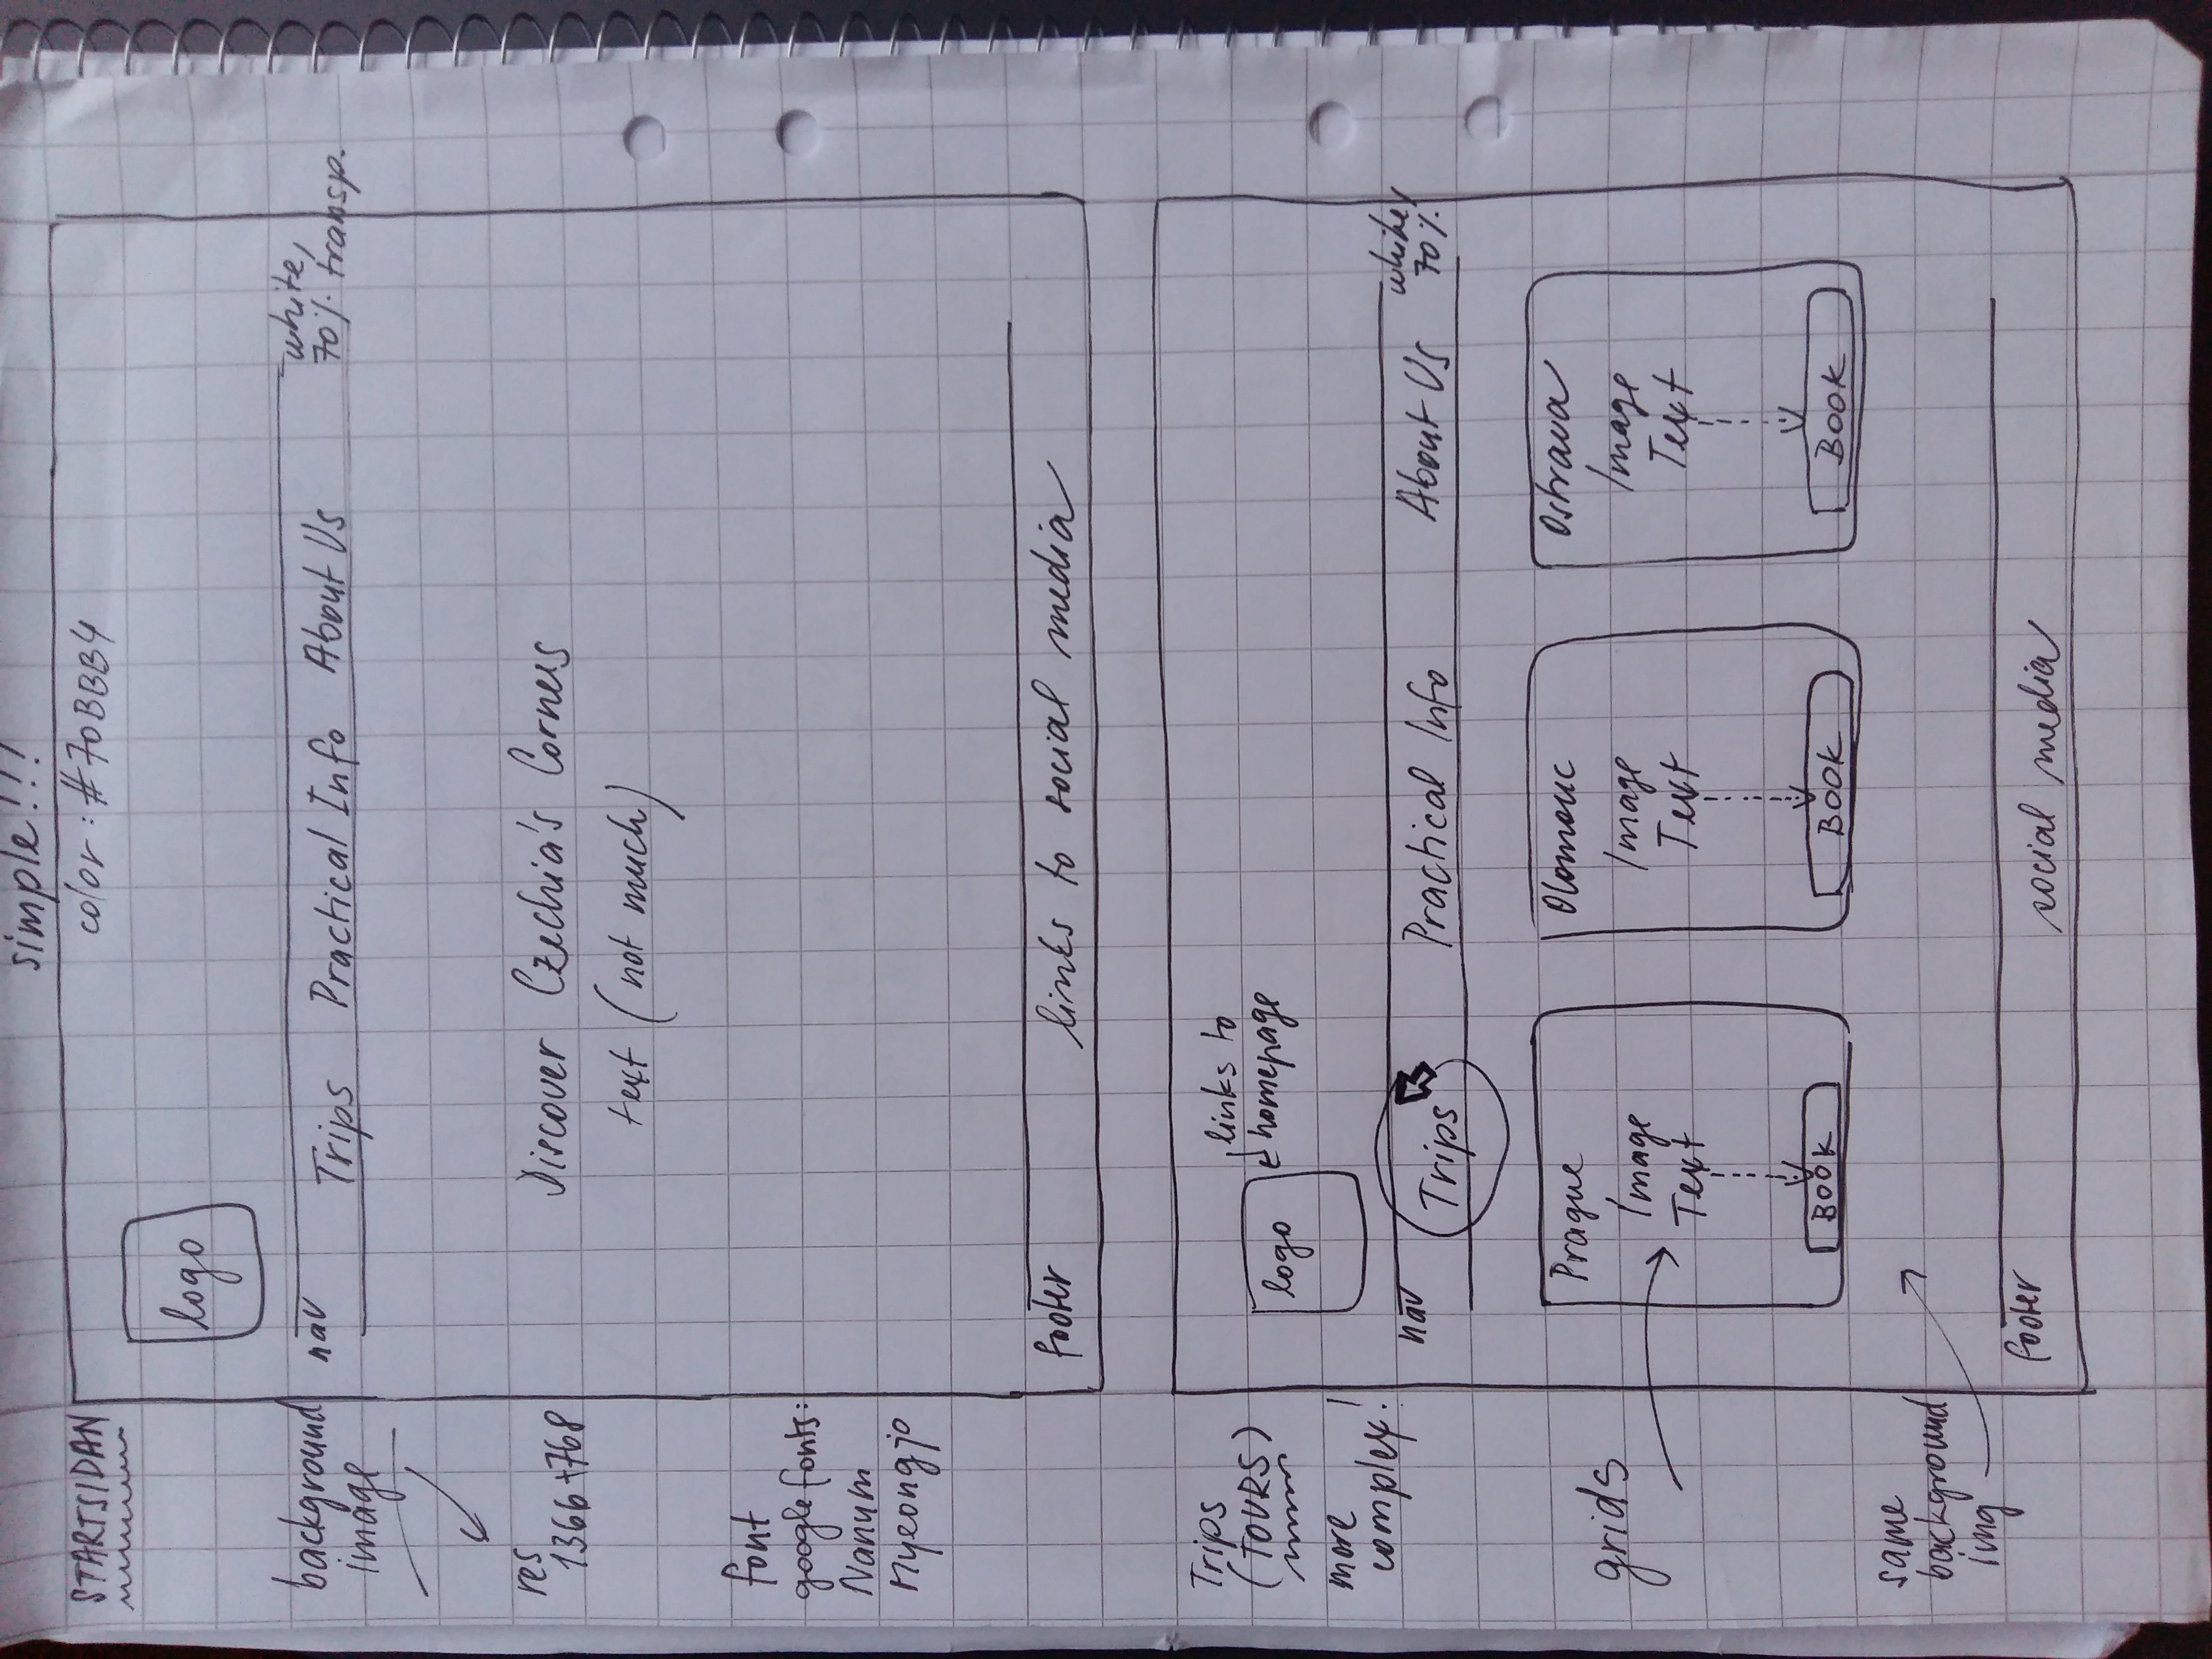 simple!!!
STARTSIDAN
color: #70BBB4
logo
background
image
nav
Trips Practical Info About Us
white,
70% transp.
res
1366+768
Discover Czechia's Corners
text (not much)
font
google fonts:
Nanum
Myeongjo
footer
links to social media
Trips
(TOURS)
more
complex!
logo
links to
homepage
nav
Trips Practical Info About Us
white,
70%.
grids
Prague
Image
Text
BOOK
Olomouc
Image
Text
BOOK
Ostrava
Image
Text
BOOK
same
background
img
footer
social media